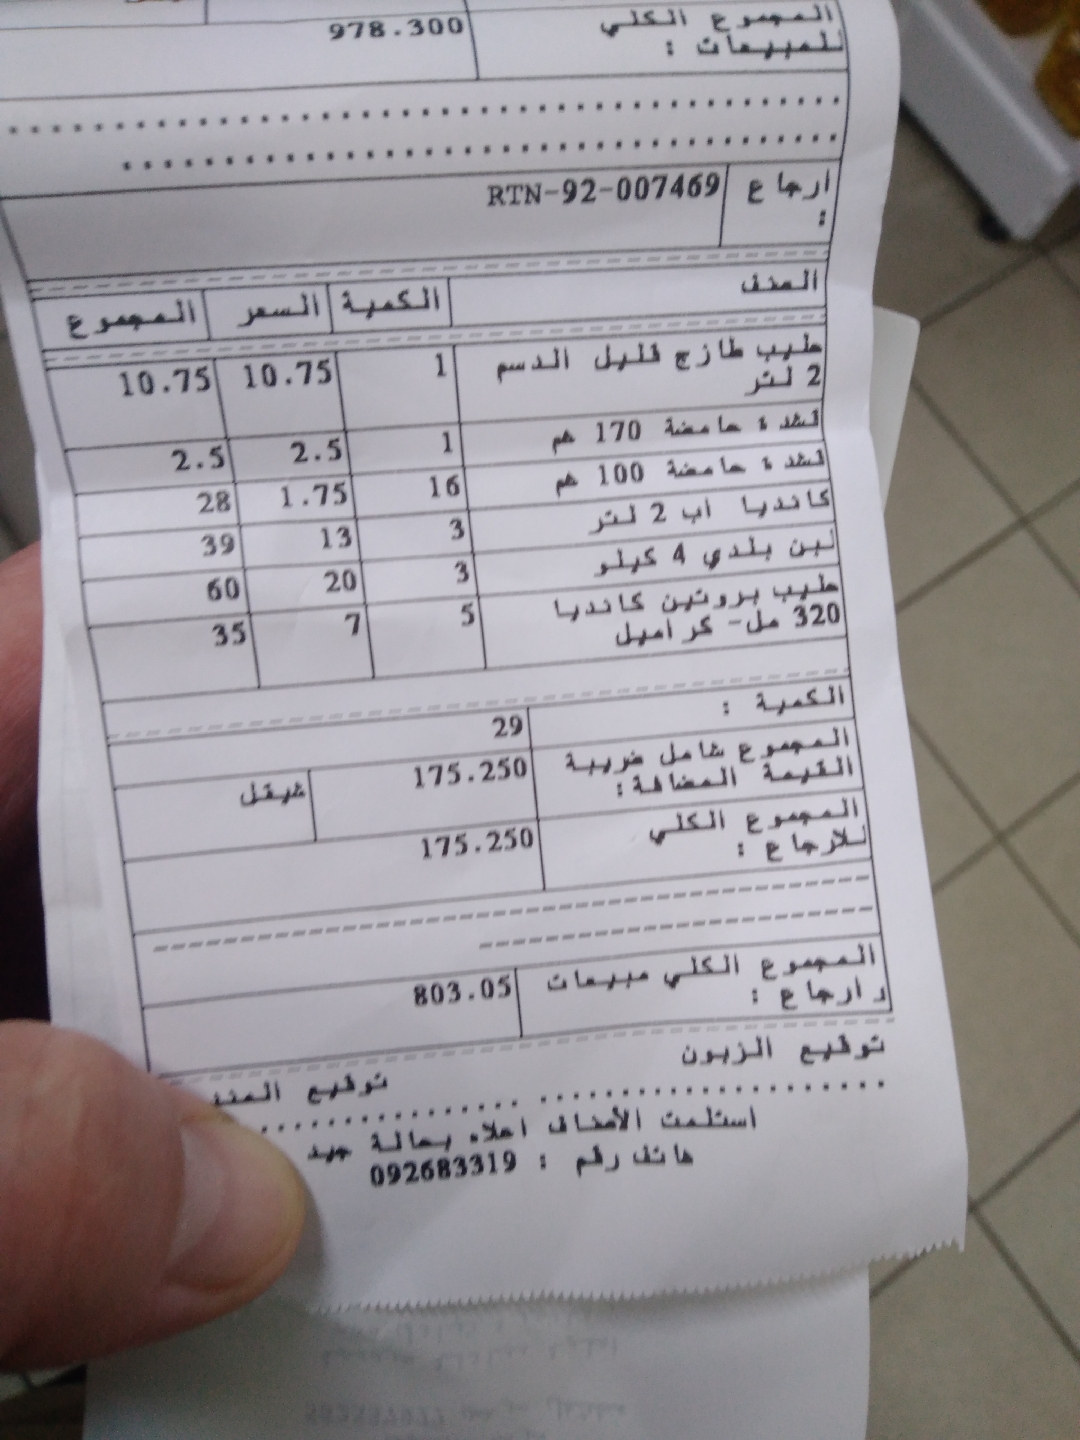 المجموع الكلي 978.300
للمبيعات :
ارجاع RTN-92-007469
:
الصنف الكمية السعر المجموع
حليب طازج قليل الدسم 1 10.75 10.75
2 لتر
قشدة حامضة 170 غم 1 2.5 2.5
قشدة حامضة 100 غم 16 1.75 28
كانديا اب 2 لتر 3 13 39
لبن بلدي 4 كيلو 3 20 60
حليب بروتين كانديا 5 7 35
320 مل- كراميل
الكمية : 29
المجموع شامل ضريبة 175.250 شيقل
القيمة المضافة:
المجموع الكلي 175.250
للارجاع :
المجموع الكلي مبيعات 803.05
و ارجاع :
توقيع الزبون توقيع
استلمت الأصناف اعلاه بحالة جيد
هاتف رقم : 092683319